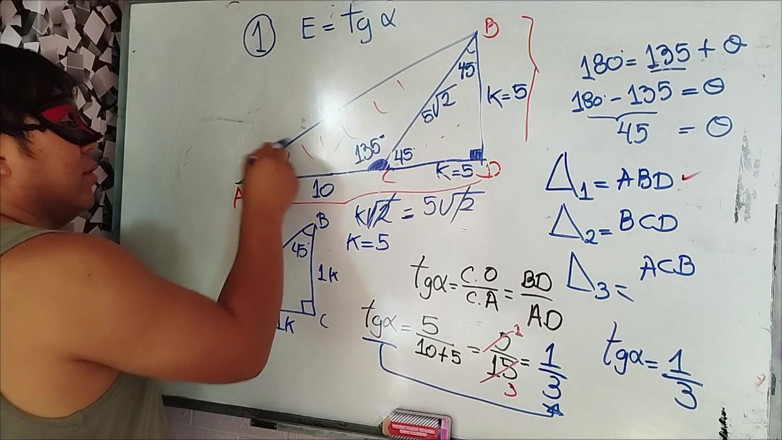 ① E = tgα
B
45
5√2
K=5
135°
45
A
10
C
K=5
D
K√2 = 5√2
K=5
B
45
1K
1K
C
180 = 135 + θ
180 - 135 = θ
45 = θ
Δ1 = ABD ✓
Δ2 = BCD
Δ3 = ACB
tgα = C.O/C.A = BD/AD
tgα = 5/(10+5) = 5/15 = 1/3
1
3
tgα = 1/3